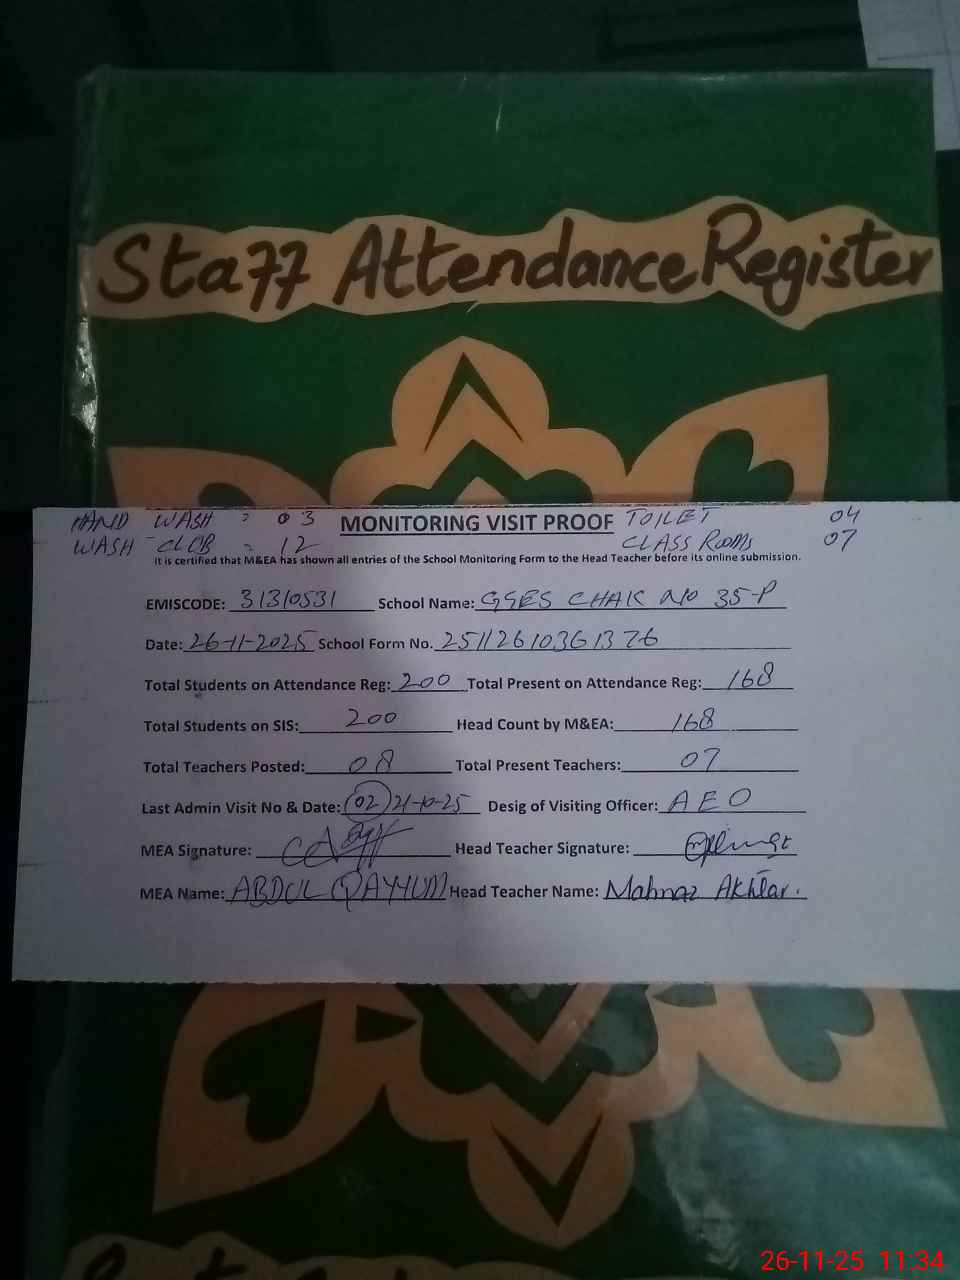 Staff Attendance Register
HAND WASH = 03 MONITORING VISIT PROOF TOILET 04
WASH CLUB = 12 CLASS ROOMS 07
It is certified that M&EA has shown all entries of the School Monitoring Form to the Head Teacher before its online submission.
EMISCODE: 31310531 School Name: GGES CHAK NO 35-P
Date: 26-11-2025 School Form No. 25112610361376
Total Students on Attendance Reg: 200 Total Present on Attendance Reg: 168
Total Students on SIS: 200 Head Count by M&EA: 168
Total Teachers Posted: 08 Total Present Teachers: 07
Last Admin Visit No & Date: 02 21-10-25 Desig of Visiting Officer: AEO
MEA Signature: Head Teacher Signature:
MEA Name: ABDUL QAYYUM Head Teacher Name: Mahnaz Akhtar.
26-11-25 11:34